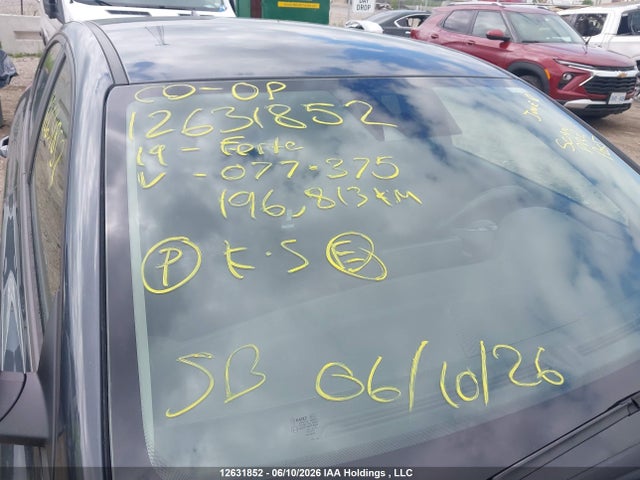 CO-OP
12631852
19 - Forte
V - 077-375
196,813 KM
P K.S E
SB 06/10/26
12631852 - 06/10/2026 IAA Holdings , LLC